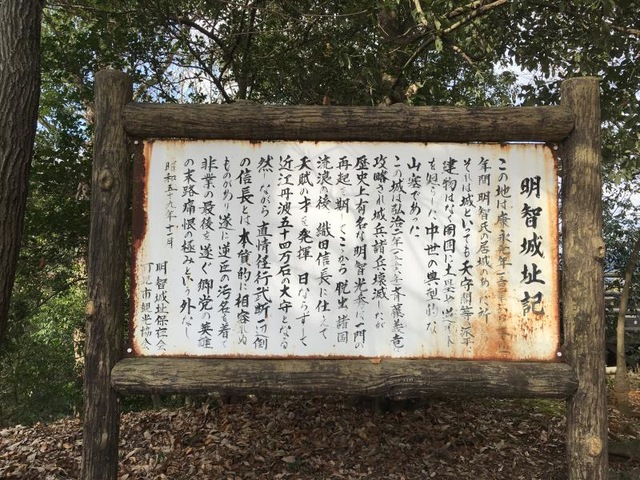 明智城址記
この地は康永元年
年間明智氏の居城のあった所
それは城といっても天守閣等の
建物はなく周囲に土塁や
中世の典型的な
山塞であった
この城は弘治二年 斉藤義竜に
攻略され城兵諸兵壊滅したが
歴史上有名な明智光秀は一門の
再起を期してここから脱出諸国
流浪の後 織田信長に仕えて
天賦の才を発揮 日ならずして
近江丹波五十四万石の大守となる
然しながら直情径行武断一辺倒
の信長とは本質的に相容れぬ
ものがあり遂に逆臣の汚名を着て
非業の最後を遂ぐ郷党の英雄
の末路痛恨の極みという外なし
昭和五十九年十二月
明智城址保存会
可児市観光協会